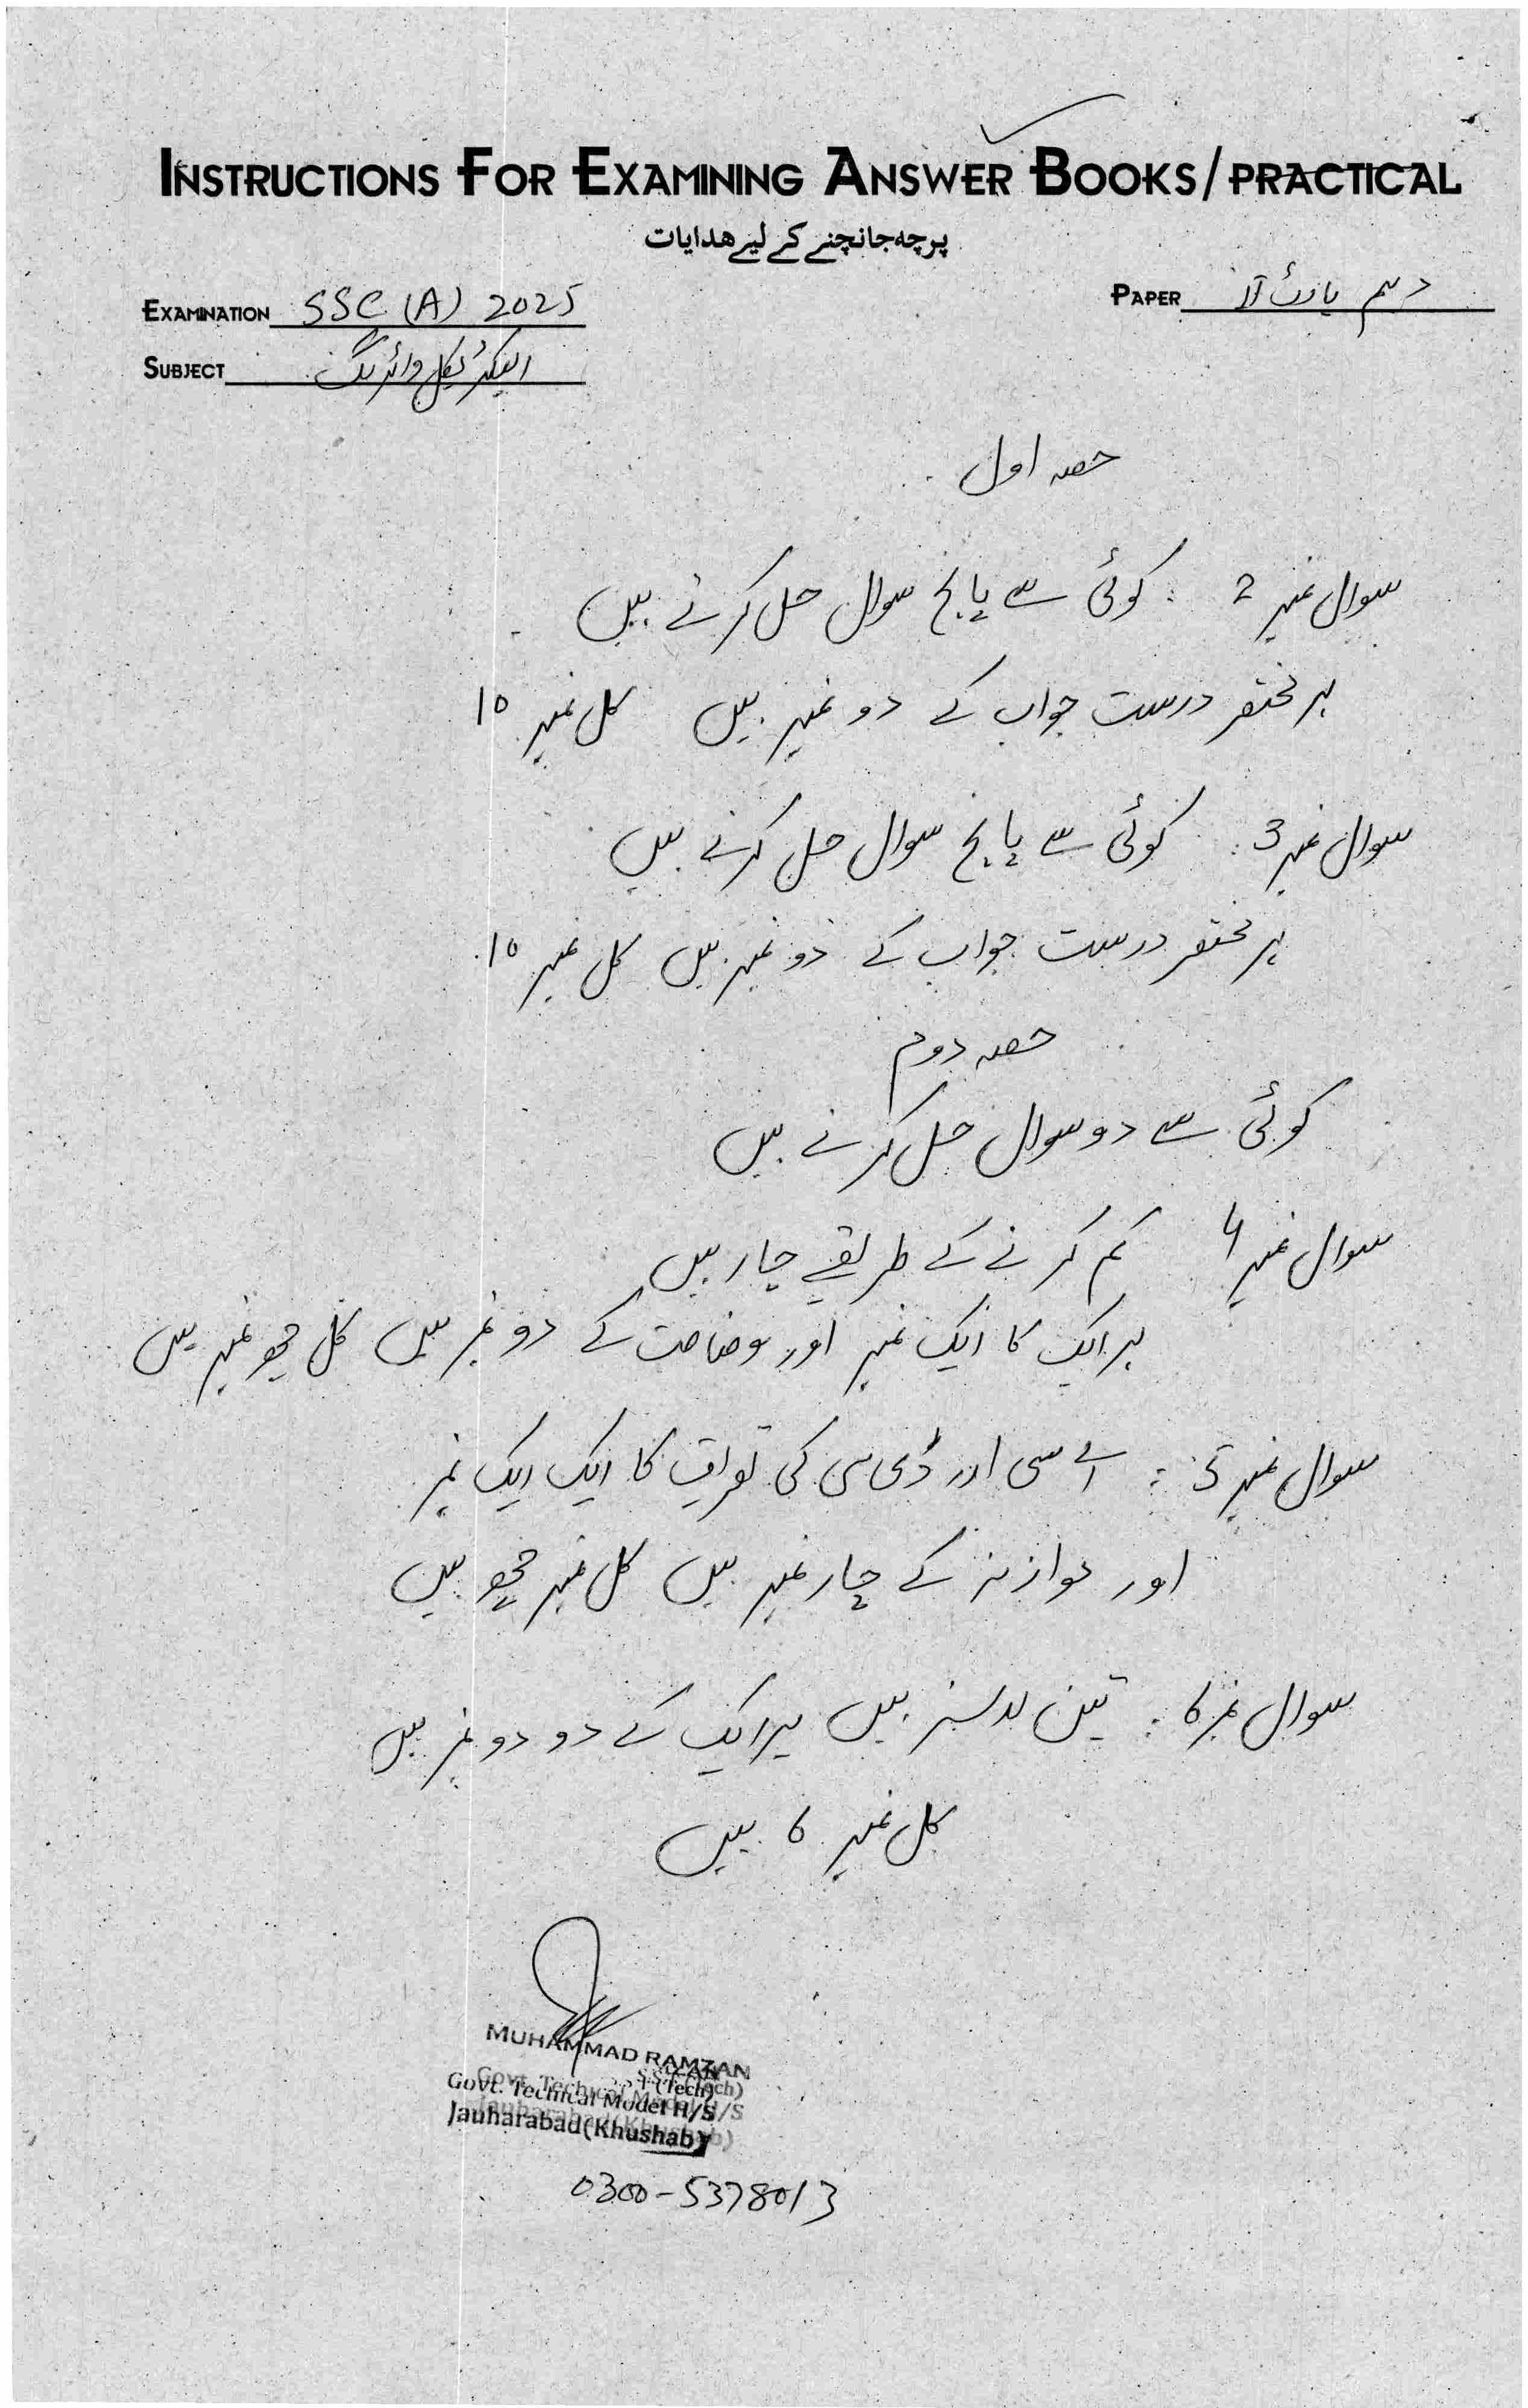 INSTRUCTIONS FOR EXAMINING ANSWER BOOKS/PRACTICAL
پرچہ جانچنے کے لیے ہدایات
EXAMINATION SSC (A) 2025
PAPER دہم پارٹ II
SUBJECT الیکٹریکل وائرنگ
حصہ اول
سوال نمبر 2 : کوئی سے پانچ سوال حل کرنے ہیں
ہر مختصر درست جواب کے دو نمبر ہیں کل نمبر 10
سوال نمبر 3 : کوئی سے پانچ سوال حل کرنے ہیں
ہر مختصر درست جواب کے دو نمبر ہیں کل نمبر 10
حصہ دوم
کوئی سے دو سوال حل کرنے ہیں
سوال نمبر 4 کم کرنے کے طریقے چار ہیں
ہر ایک کا ایک نمبر اور وضاحت کے دو نمبر ہیں کل چھ نمبر ہیں
سوال نمبر 5 : اے سی اور ڈی سی کی تعریف کا ایک ایک نمبر
اور موازنہ کے چار نمبر ہیں کل نمبر چھ ہیں
سوال نمبر 6 : تین ہیں ہر ایک کے دو دو نمبر ہیں
کل نمبر 6 ہیں
MUHAMMAD RAMZAN
SST (Tech)
Govt. Techical Model H/S
Jauharabad (Khushab)
0300-5378013